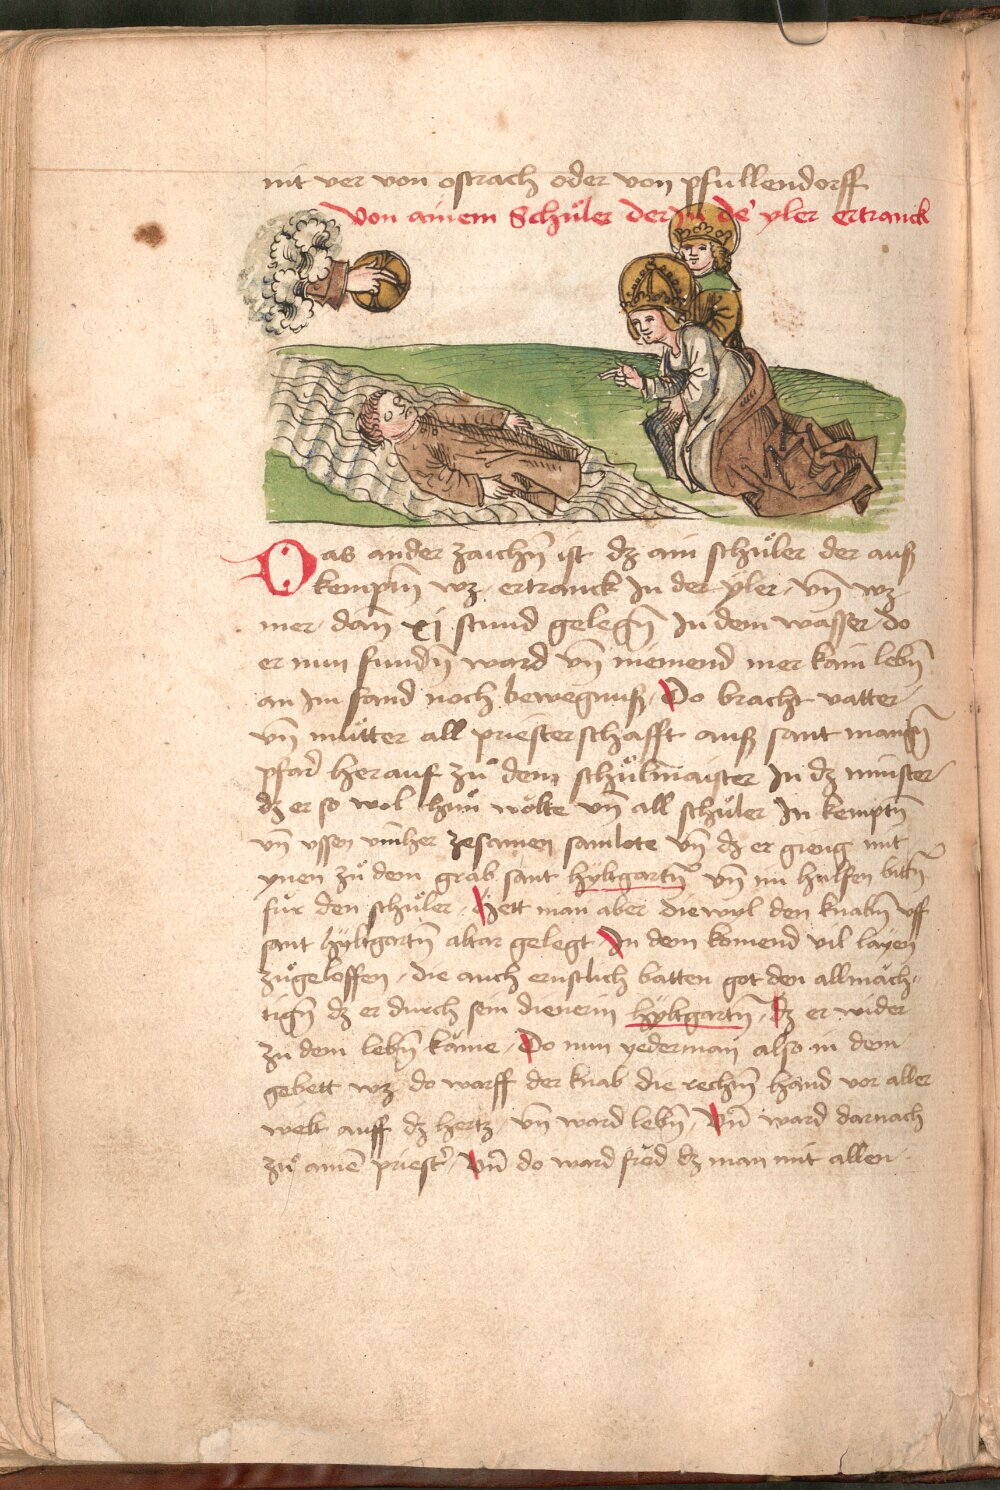 nit ver von ostrach oder von pfullendorff
Von ainem Schuͦler der in de' yler ertranck
Das ander zaichn̄ ist dz ain schuͦler der auß
kemptn̄ wz, ertranck In der yler, vn̄ wz
mer dan̄ xj stund gelegn̄ In dem wasser do
er nun fundn̄ ward vn̄ niemend mer kain lebn̄
an Im fand noch bewegnuß, Do bracht vatter
vn̄ muͦtter all priesterschafft auß sant mangn̄
pfard herauf zuͦ dem schuͦlmaister In dz minster
dz er so wol thuͦn woͤlte vn̄ all schuͦler In kemptn̄
vn̄ vssen vmher zesamen samlete vn̄ dz er gieng mit
ynen zuͦ dem grab sant hyltgartn̄ vn̄ im hulfen bittn̄
fuͤr den schuͦler, Hett man aber die wyl den knabn̄ vff
sant hyltgartn̄ altar gelegt, In dem komend vil layen
zuͦgeloffen, die auch ernstlich batten got den allmaͤch-
tign̄ dz er durch sein dienerin hyltgartn̄, dz er wider
zu dem lebn̄ kaͤme, Do nun yederman also in dem
gebett wz do warff der knab die rechn̄ hand vor aller
welt auff dz hertz, vn̄ ward lebn̄, Vn̄ ward darnach
zuͦ aine priest', Vn̄ do ward froͤd dz man mit allen